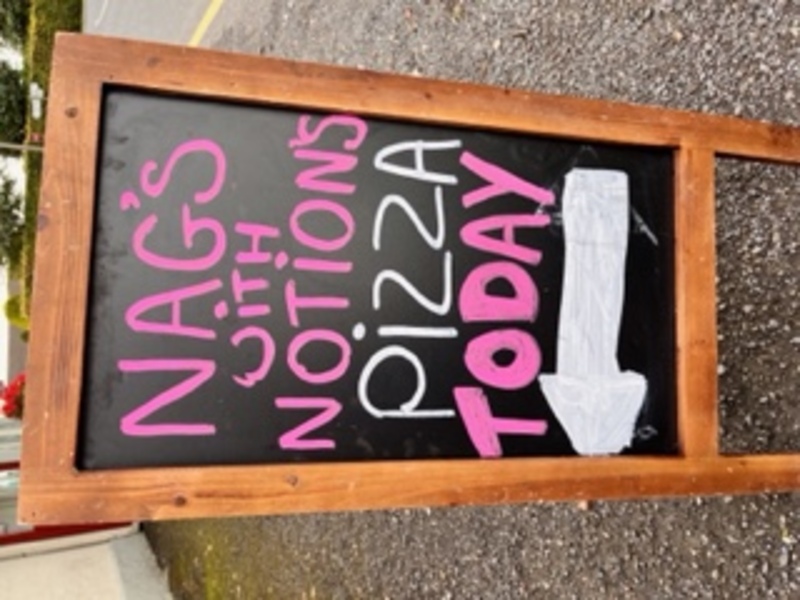 NAG'S
WiTH
NOTiON'S
PiZZA
TODAY